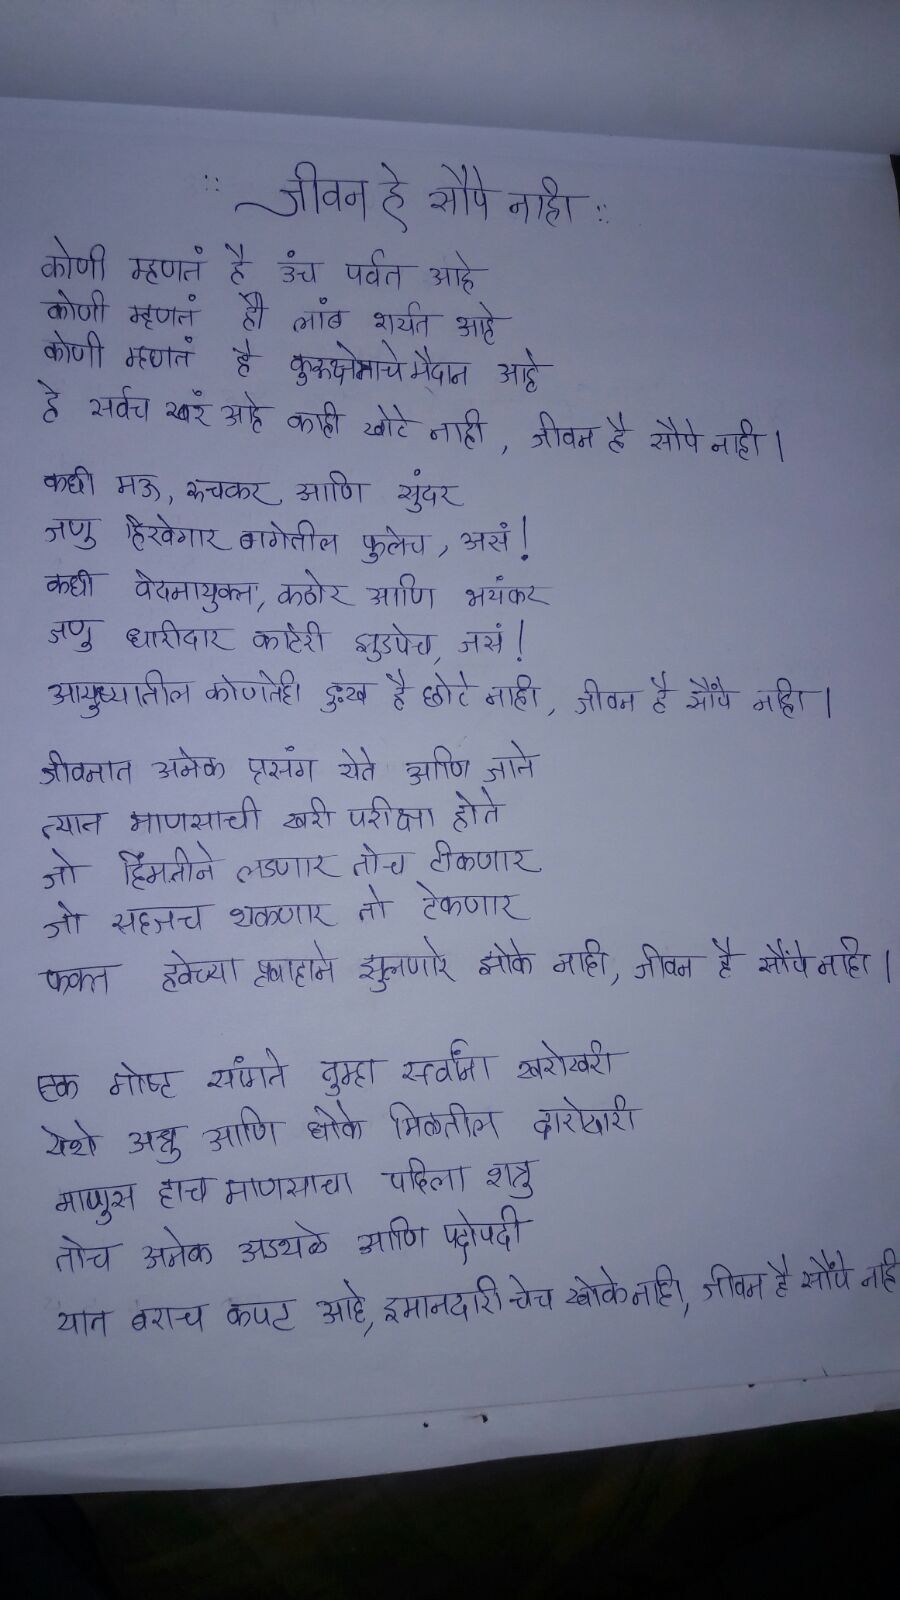 :: जीवन हे सोपे नाही ::
कोणी म्हणतं हे उंच पर्वत आहे
कोणी म्हणतं ही लांब शर्यत आहे
कोणी म्हणतं हे कुरुक्षेत्राचे मैदान आहे
हे सर्वच खरं आहे काही खोटे नाही, जीवन हे सोपे नाही।
कधी मऊ, रुचकर आणि सुंदर
जणु हिरवेगार बागेतील फुलेच, असं!
कधी वेदनायुक्त, कठोर आणि भयंकर
जणु धारीदार काटेरी झुडपेच, जसं!
आयुष्यातील कोणतेही दुःख हे छोटे नाही, जीवन हे सोपे नाही।
जीवनात अनेक प्रसंग येते आणि जाते
त्यात माणसाची खरी परीक्षा होते
जो हिंमतीने लढणार तोच टीकणार
जो सहजच थकणार तो टेकणार
फक्त हवेच्या प्रवाहाने झुलणारे झोके नाही, जीवन हे सोपे नाही।
एक गोष्ट सांगते तुम्हा सर्वांना खरोखरी
येथे अश्रु आणि धोके मिळतील दारोदारी
माणुस हाच माणसाचा पहिला शत्रु
तोच अनेक अडथळे आणि पदोपदी
यात बराच कपट आहे, इमानदारीचेच खोके नाही, जीवन हे सोपे नाही